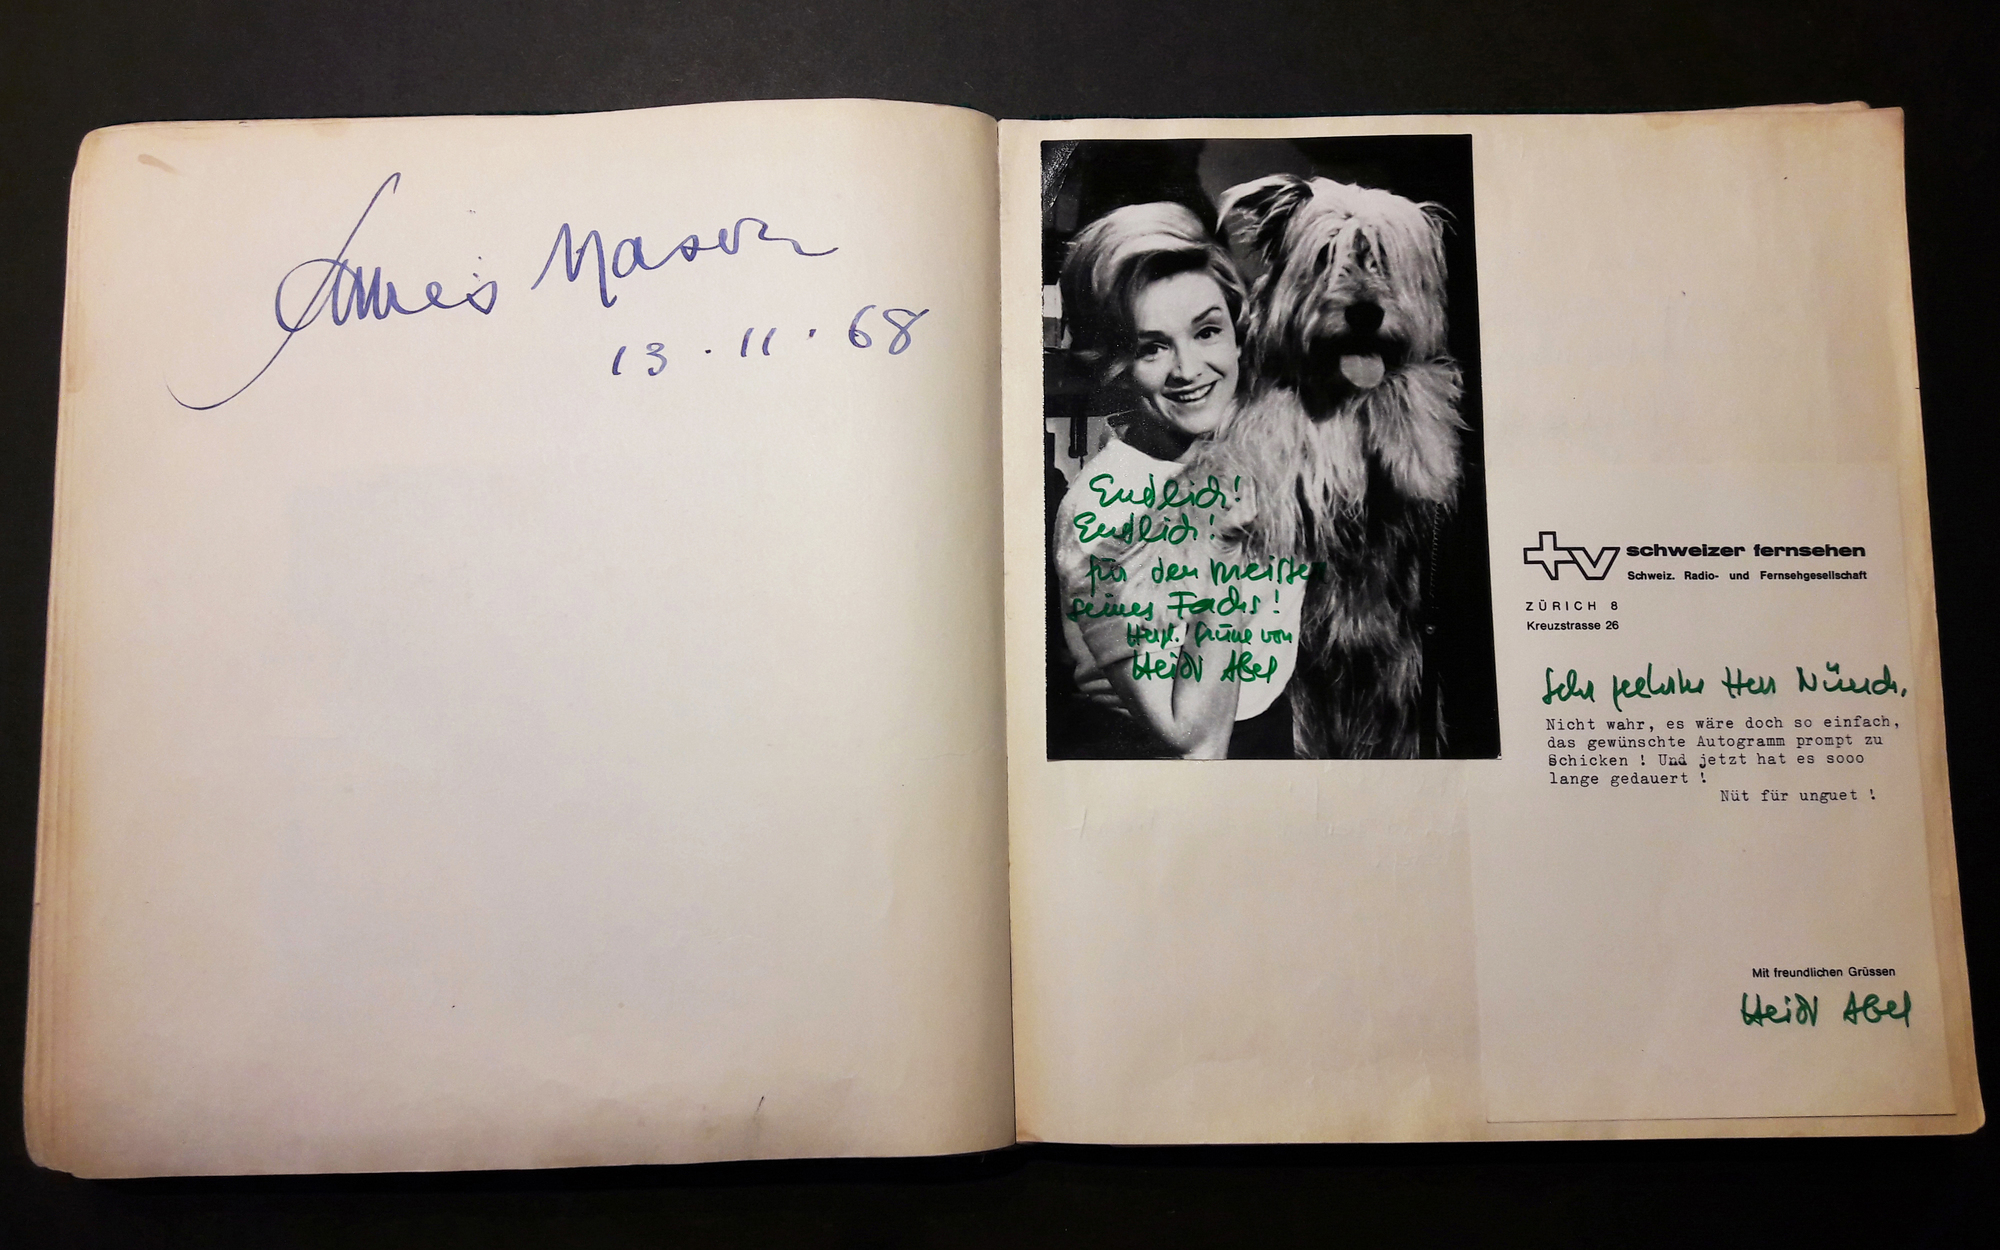 James Mason
13.11.68
Endlich!
Endlich!
für den Meister
seines Fachs!
Herzl. Grüsse von
Heidi Abel
tv schweizer fernsehen
Schweiz. Radio- und Fernsehgesellschaft
ZÜRICH 8
Kreuzstrasse 26
Sehr geehrter Herr Münch,
Nicht wahr, es wäre doch so einfach,
das gewünschte Autogramm prompt zu
Schicken ! Und jetzt hat es sooo
lange gedauert !
Nüt für unguet !
Mit freundlichen Grüssen
Heidi Abel